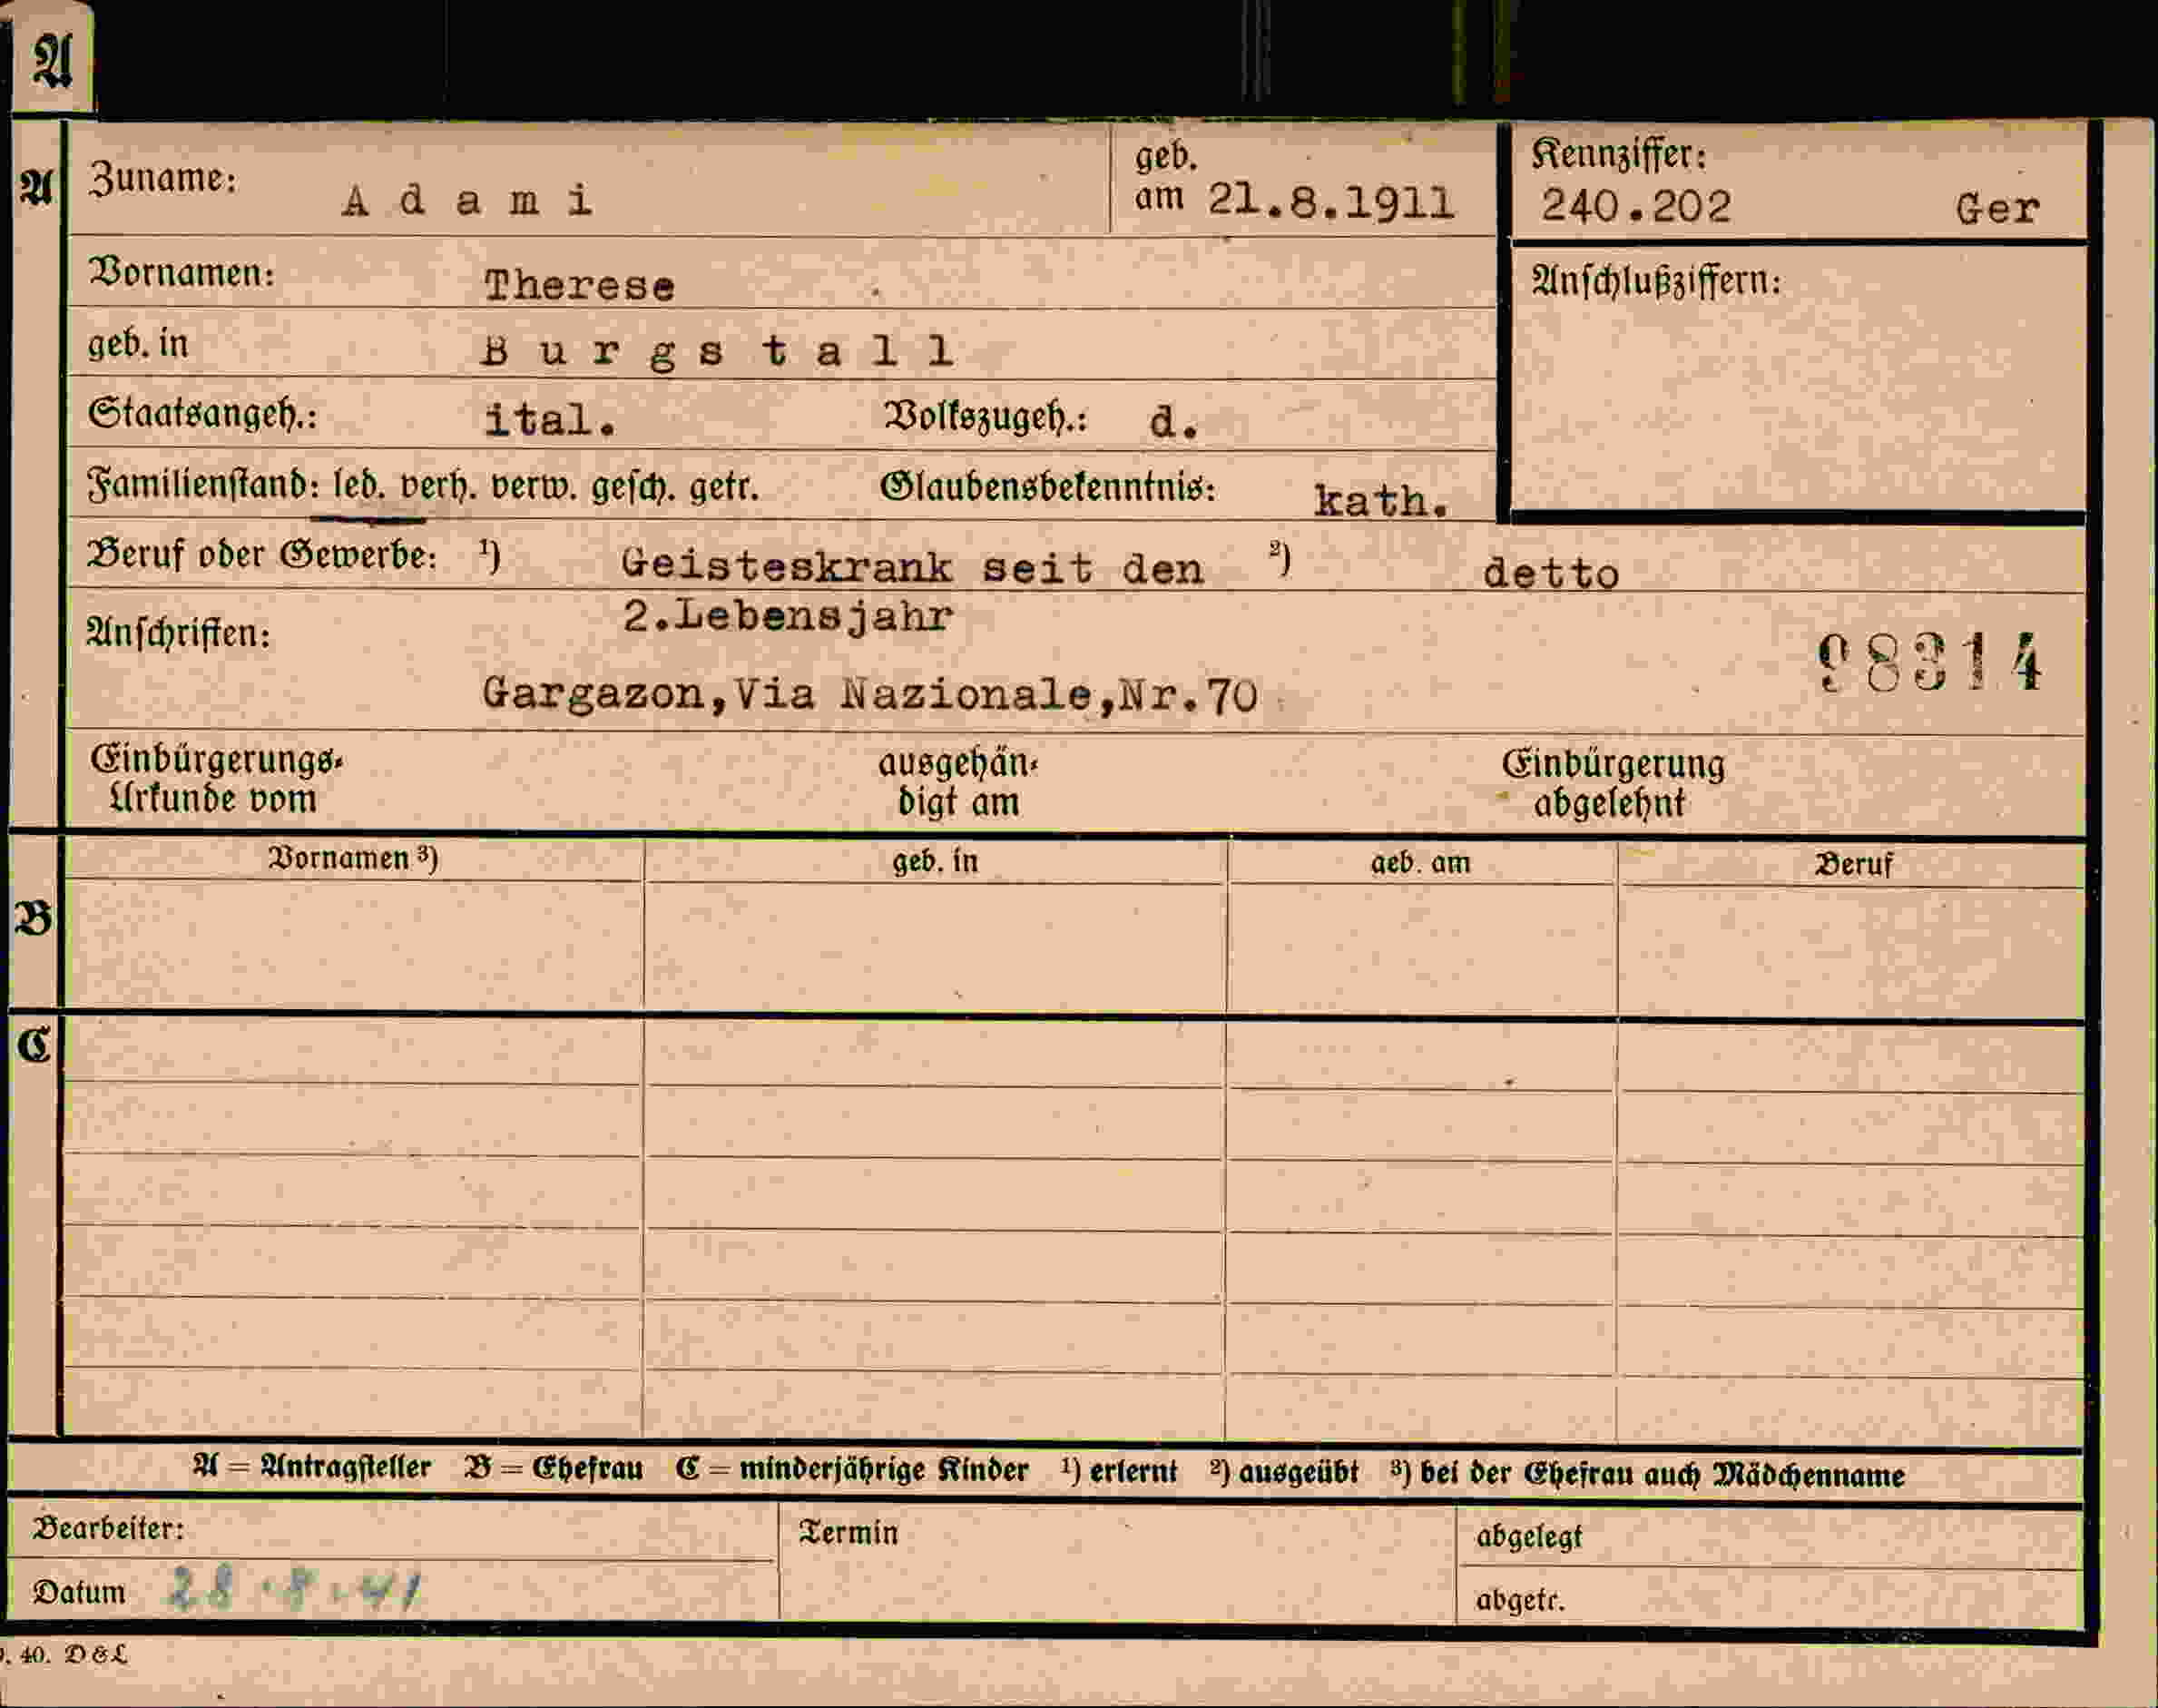 A
A
Zuname: Adami
geb. am 21.8.1911
Kennziffer:
240.202 Ger
Vornamen: Therese
Anschlußziffern:
geb. in Burgstall
Staatsangeh.: ital. Volkszugeh.: d.
Familienstand: led. verh. verw. gesch. getr. Glaubensbekenntnis: kath.
Beruf oder Gewerbe: ¹) Geisteskrank seit den ²) detto
2.Lebensjahr
Anschriften:
98314
Gargazon,Via Nazionale,Nr.70
Einbürgerungs- ausgehän- Einbürgerung
Urkunde vom digt am abgelehnt
Vornamen ³) geb. in geb. am Beruf
B
C
A = Antragsteller B = Ehefrau C = minderjährige Kinder ¹) erlernt ²) ausgeübt ³) bei der Ehefrau auch Mädchenname
Bearbeiter: Termin abgelegt
Datum 28.8.41 abgetr.
40. D&L